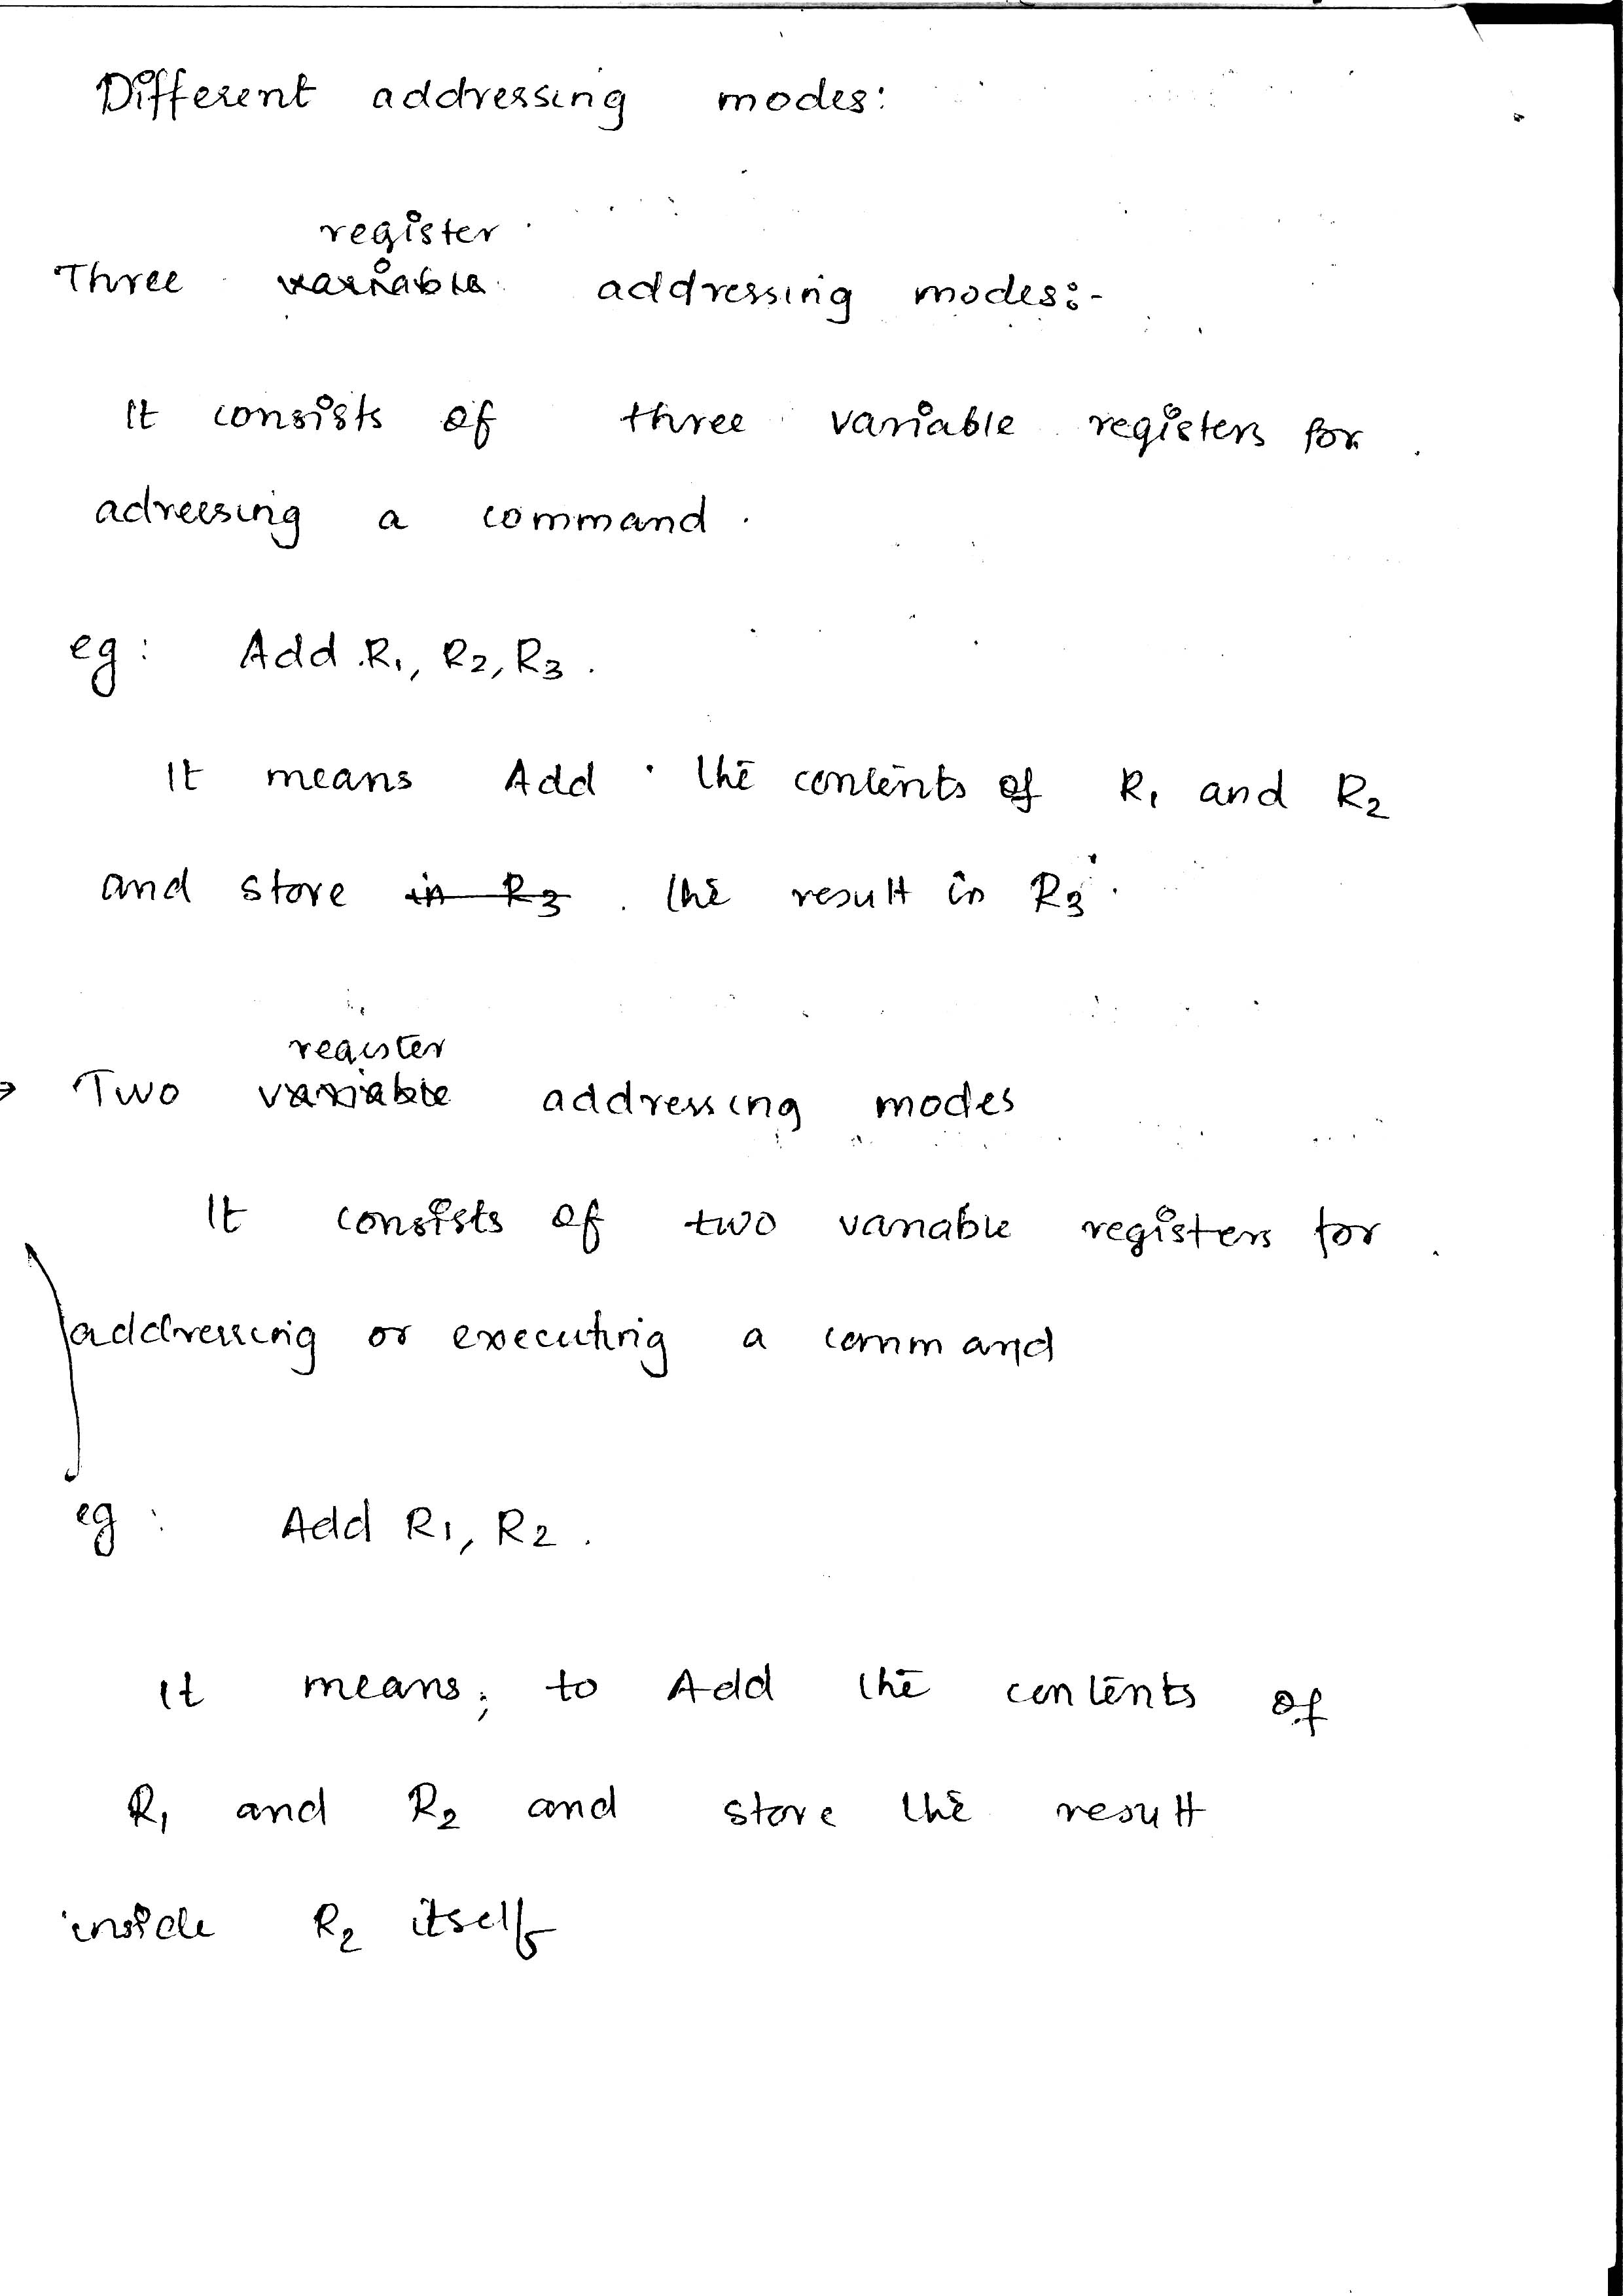 Different addressing modes:
register
Three variable addressing modes:-
It consists of three variable registers for
adreesing a command.
eg: Add R1, R2, R3.
It means Add the contents of R1 and R2
and store in R3 the result in R3.
register
→ Two variable addressing modes
It consists of two variable registers for
addressing or executing a command
eg: Add R1, R2.
It means; to Add the contents of
R1 and R2 and store the result
inside R2 itself